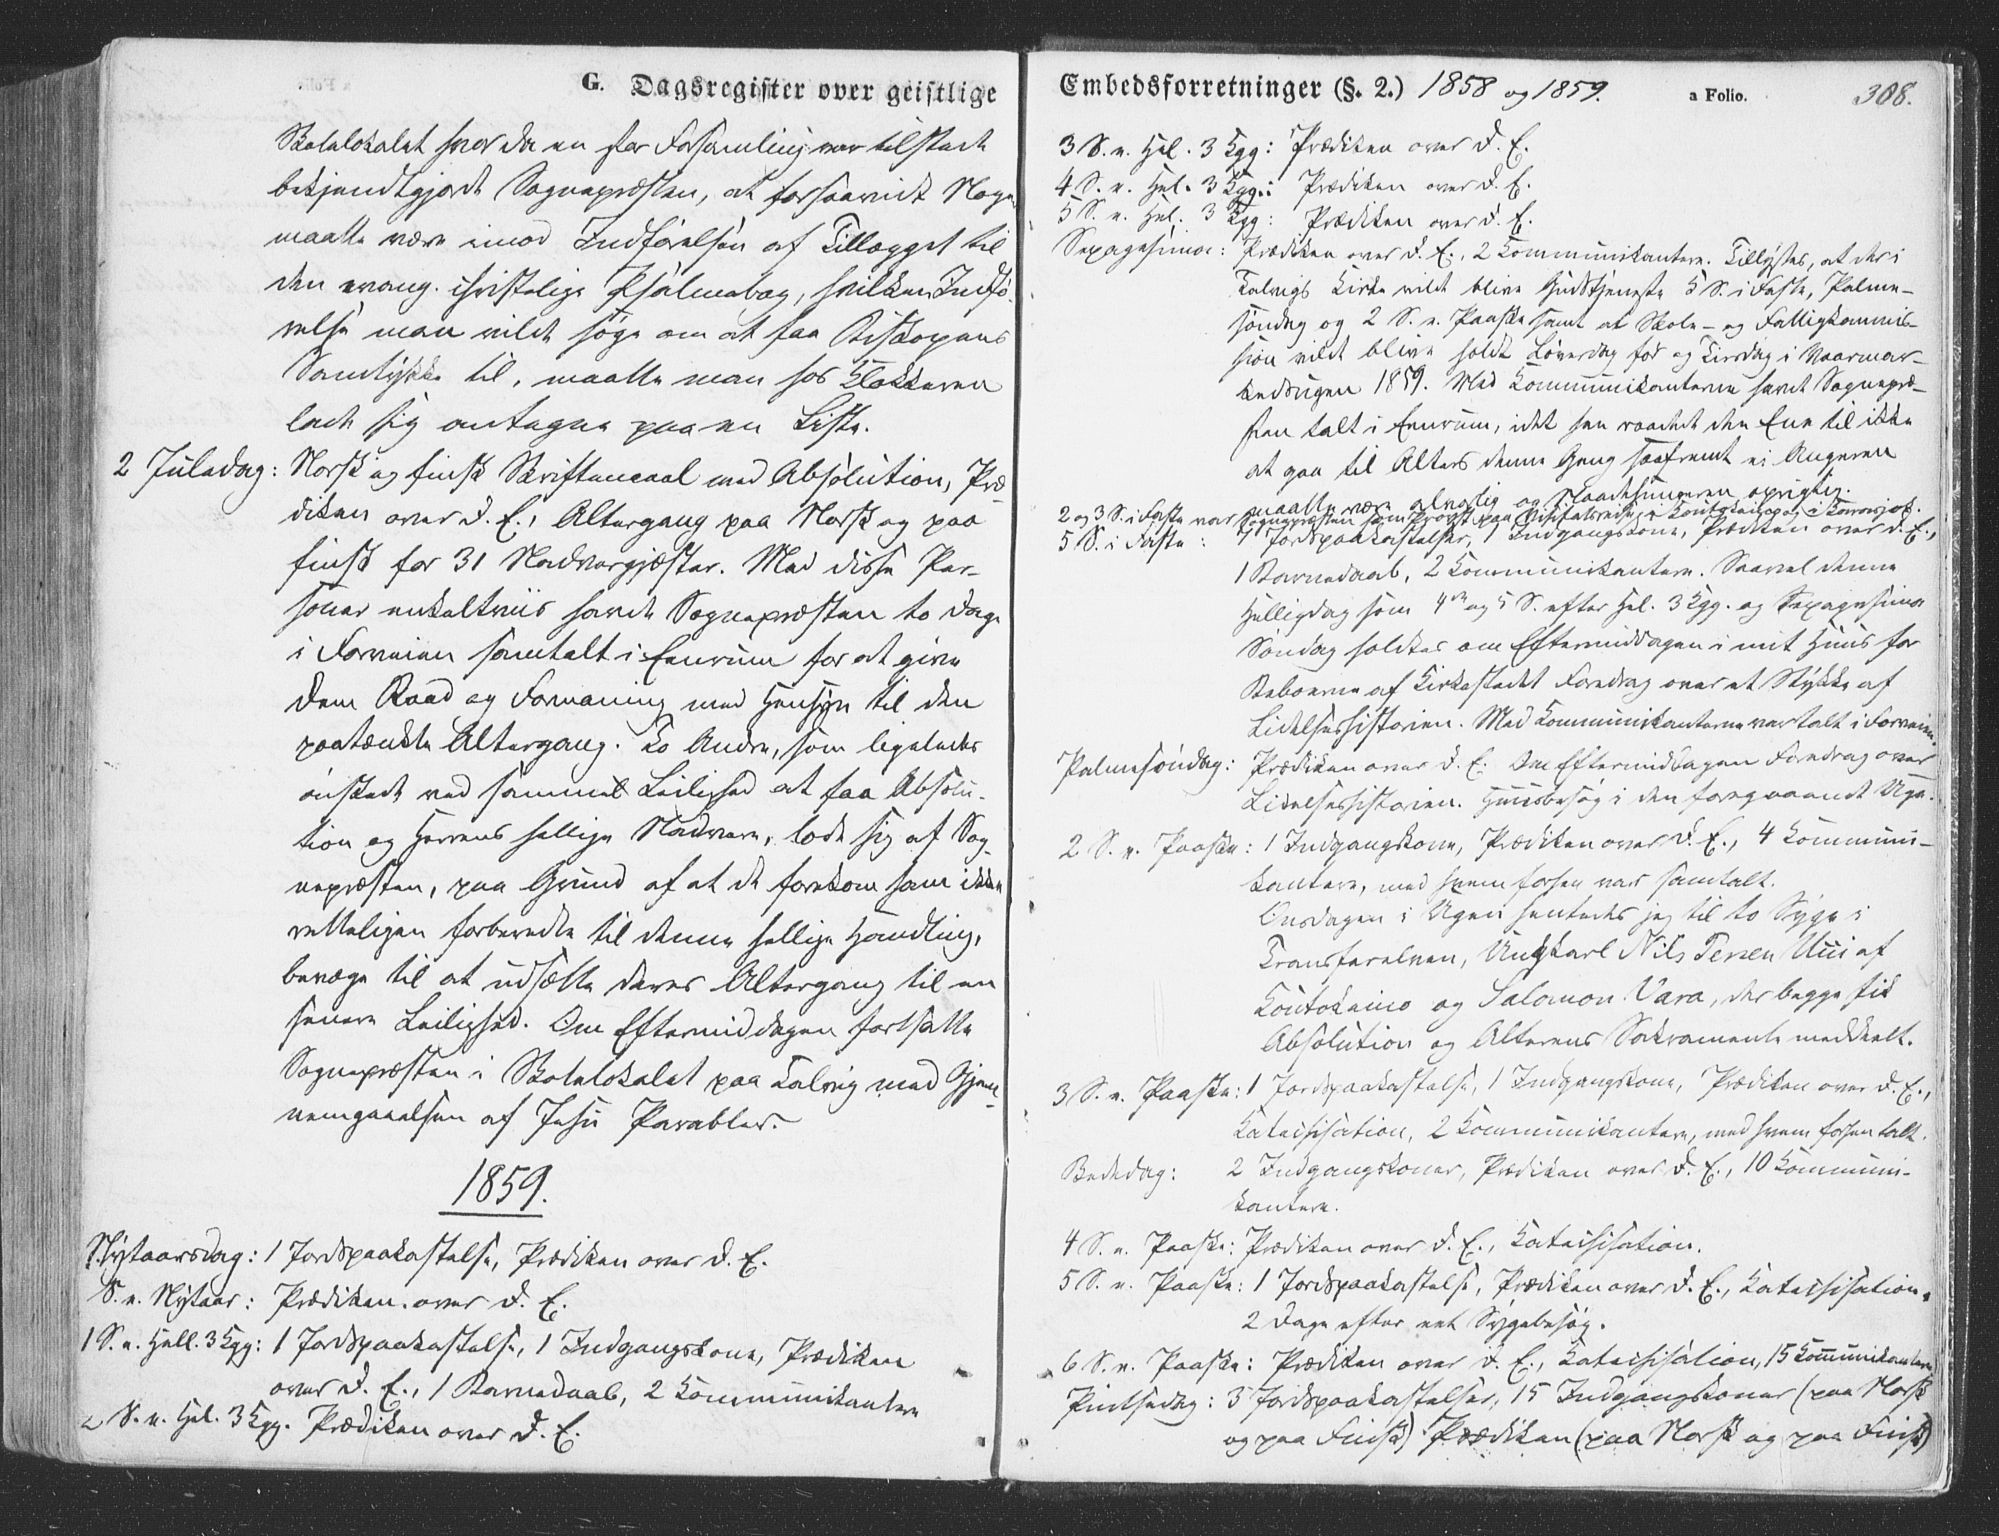 G. Dagsregister over geistlige
Skolelokalet hvor da en stor Forsamling var tilstede
bekjendtgjorde Sognepræsten, at forsaavidt Nogen
maatte være imod Indførelsen af Tillægget til
den evang. christelige Psalmebog, hvilken Indfø-
relse man vilde søge om at faa Biskopens
Samtykke til, maatte man hos Klokkeren
lade sig antegne paa en Liste.
2 Juledag: Norsk og finsk Skriftemaal med Absolution, Præ-
diken over d. E., Altergang paa Norsk og paa
finsk for 31 Nadvergjæster. Med disse Per-
soner enkeltviis havde Sognepræsten to Dage
i Forveien samtalt i Eenrum for at give
dem Raad og Formaning med Hensyn til den
paatænkte Altergang. To Andre, som ligeledes
ønskede ved samme Leilighed at faa Absolu-
tion og Herrens hellige Nadvere, lode sig af Sog-
nepræsten, paa Grund af at de forekom ham ikke
retteligen forberedte til denne hellige Handling,
bevæge til at udsætte deres Altergang til en
senere Leilighed. Om Eftermiddagen fortsatte
Sognepræsten i Skolelokalet paa Talvig med Gjen-
nemgaaelsen af Jesu Parabler.
1859.
Nytaarsdag: 1 Jordspaakastelse, Prædiken over d. E.
S. e. Nytaar: Prædiken over d. E.
1 S. e. Hell. 3 Kgg: 1 Jordspaakastelse, 1 Indgangskone, Prædiken
over d. E., 1 Barnedaab, 2 Kommunikantere
2 S. e. Hel. 3 Kgg. Prædiken over d. E.
Embedsforretninger (§. 2.) 1858 og 1859. a Folio. 308.
3 S. e. Hel. 3 Kgg: Prædiken over d. E.
4 S. e. Hel. 3 Kgg: Prædiken over d. E.
5 S. e. Hel. 3 Kgg: Prædiken over d. E.
Sexagesima: Prædiken over d. E., 2 Kommunikantere. Tillystes, at der i
Talvigs Kirke vilde blive Gudstjeneste 5 S. i Faste, Palme-
søndag og 2 S. e. Paaske samt at Skole- og Fattigkommis-
sion vilde blive holdt Løverdag før og Tirsdag i Vaarmar-
kedsugen 1859. Med Kommunikanterne havde Sognepræ-
sten talt i Eenrum, idet han raadede den Ene til ikke
at gaa til Alters denne Gang saafremt ei Angeren
maatte være alvorlig og Naadehungeren oprigtig.
2 og 3 S. i Faste var Sognepræsten som Provst paa Visitatsreise i Koutokeino og i Karasjok.
5 S. i Faste: 7 Jordspaakastelser, 1 Indgangskone, Prædiken over d. E.,
1 Barnedaab, 2 Kommunikantere. Saavel denne
Helligdag som 4de og 5 S. efter Hel. 3 Kgg. og Sexagesima
Søndag holdtes om Eftermiddagen i mit Huus for
Beboerne af Kirkestedet Foredrag over et Stykke af
Lidelseshistorien. Med Kommunikanterne var talt i Forveien.
Palmesøndag: Prædiken over d. E. Om Eftermiddagen Foredrag over
Lidelseshistorien. Huusbesøg i den foregaaende Uge.
2 S. e. Paaske: 1 Indgangskone, Prædiken over d. E., 4 Kommuni-
kantere, med hvem forhen var samtalt.
Onsdagen i Ugen hentedes jeg til to Syge i
Transfarelven, Ungkarl Nils Persen Utsi af
Koutokeino og Salomon Vara, der begge fik
Absolution og Alterens Sakramente meddeelt.
3 S. e. Paaske: 1 Jordspaakastelse, 1 Indgangskone, Prædiken over d. E.,
Katechisation, 2 Kommunikantere, med hvem forhen talt.
Bededag: 2 Indgangskoner, Prædiken over d. E., 10 Kommuni-
kantere.
4 S. e. Paaske: Prædiken over d. E., Katechisation.
5 S. e. Paaske: 1 Jordspaakastelse, Prædiken over d. E., Katechisation.
2 Dage efter eet Sygebesøg.
6 S. e. Paaske: Prædiken over d. E., Katechisation, 15 Kommunikantere
Pintsedag: 3 Jordspaakastelser, 15 Indgangskoner (paa Norsk
og paa Finsk) Prædiken (paa Norsk og paa Finsk)